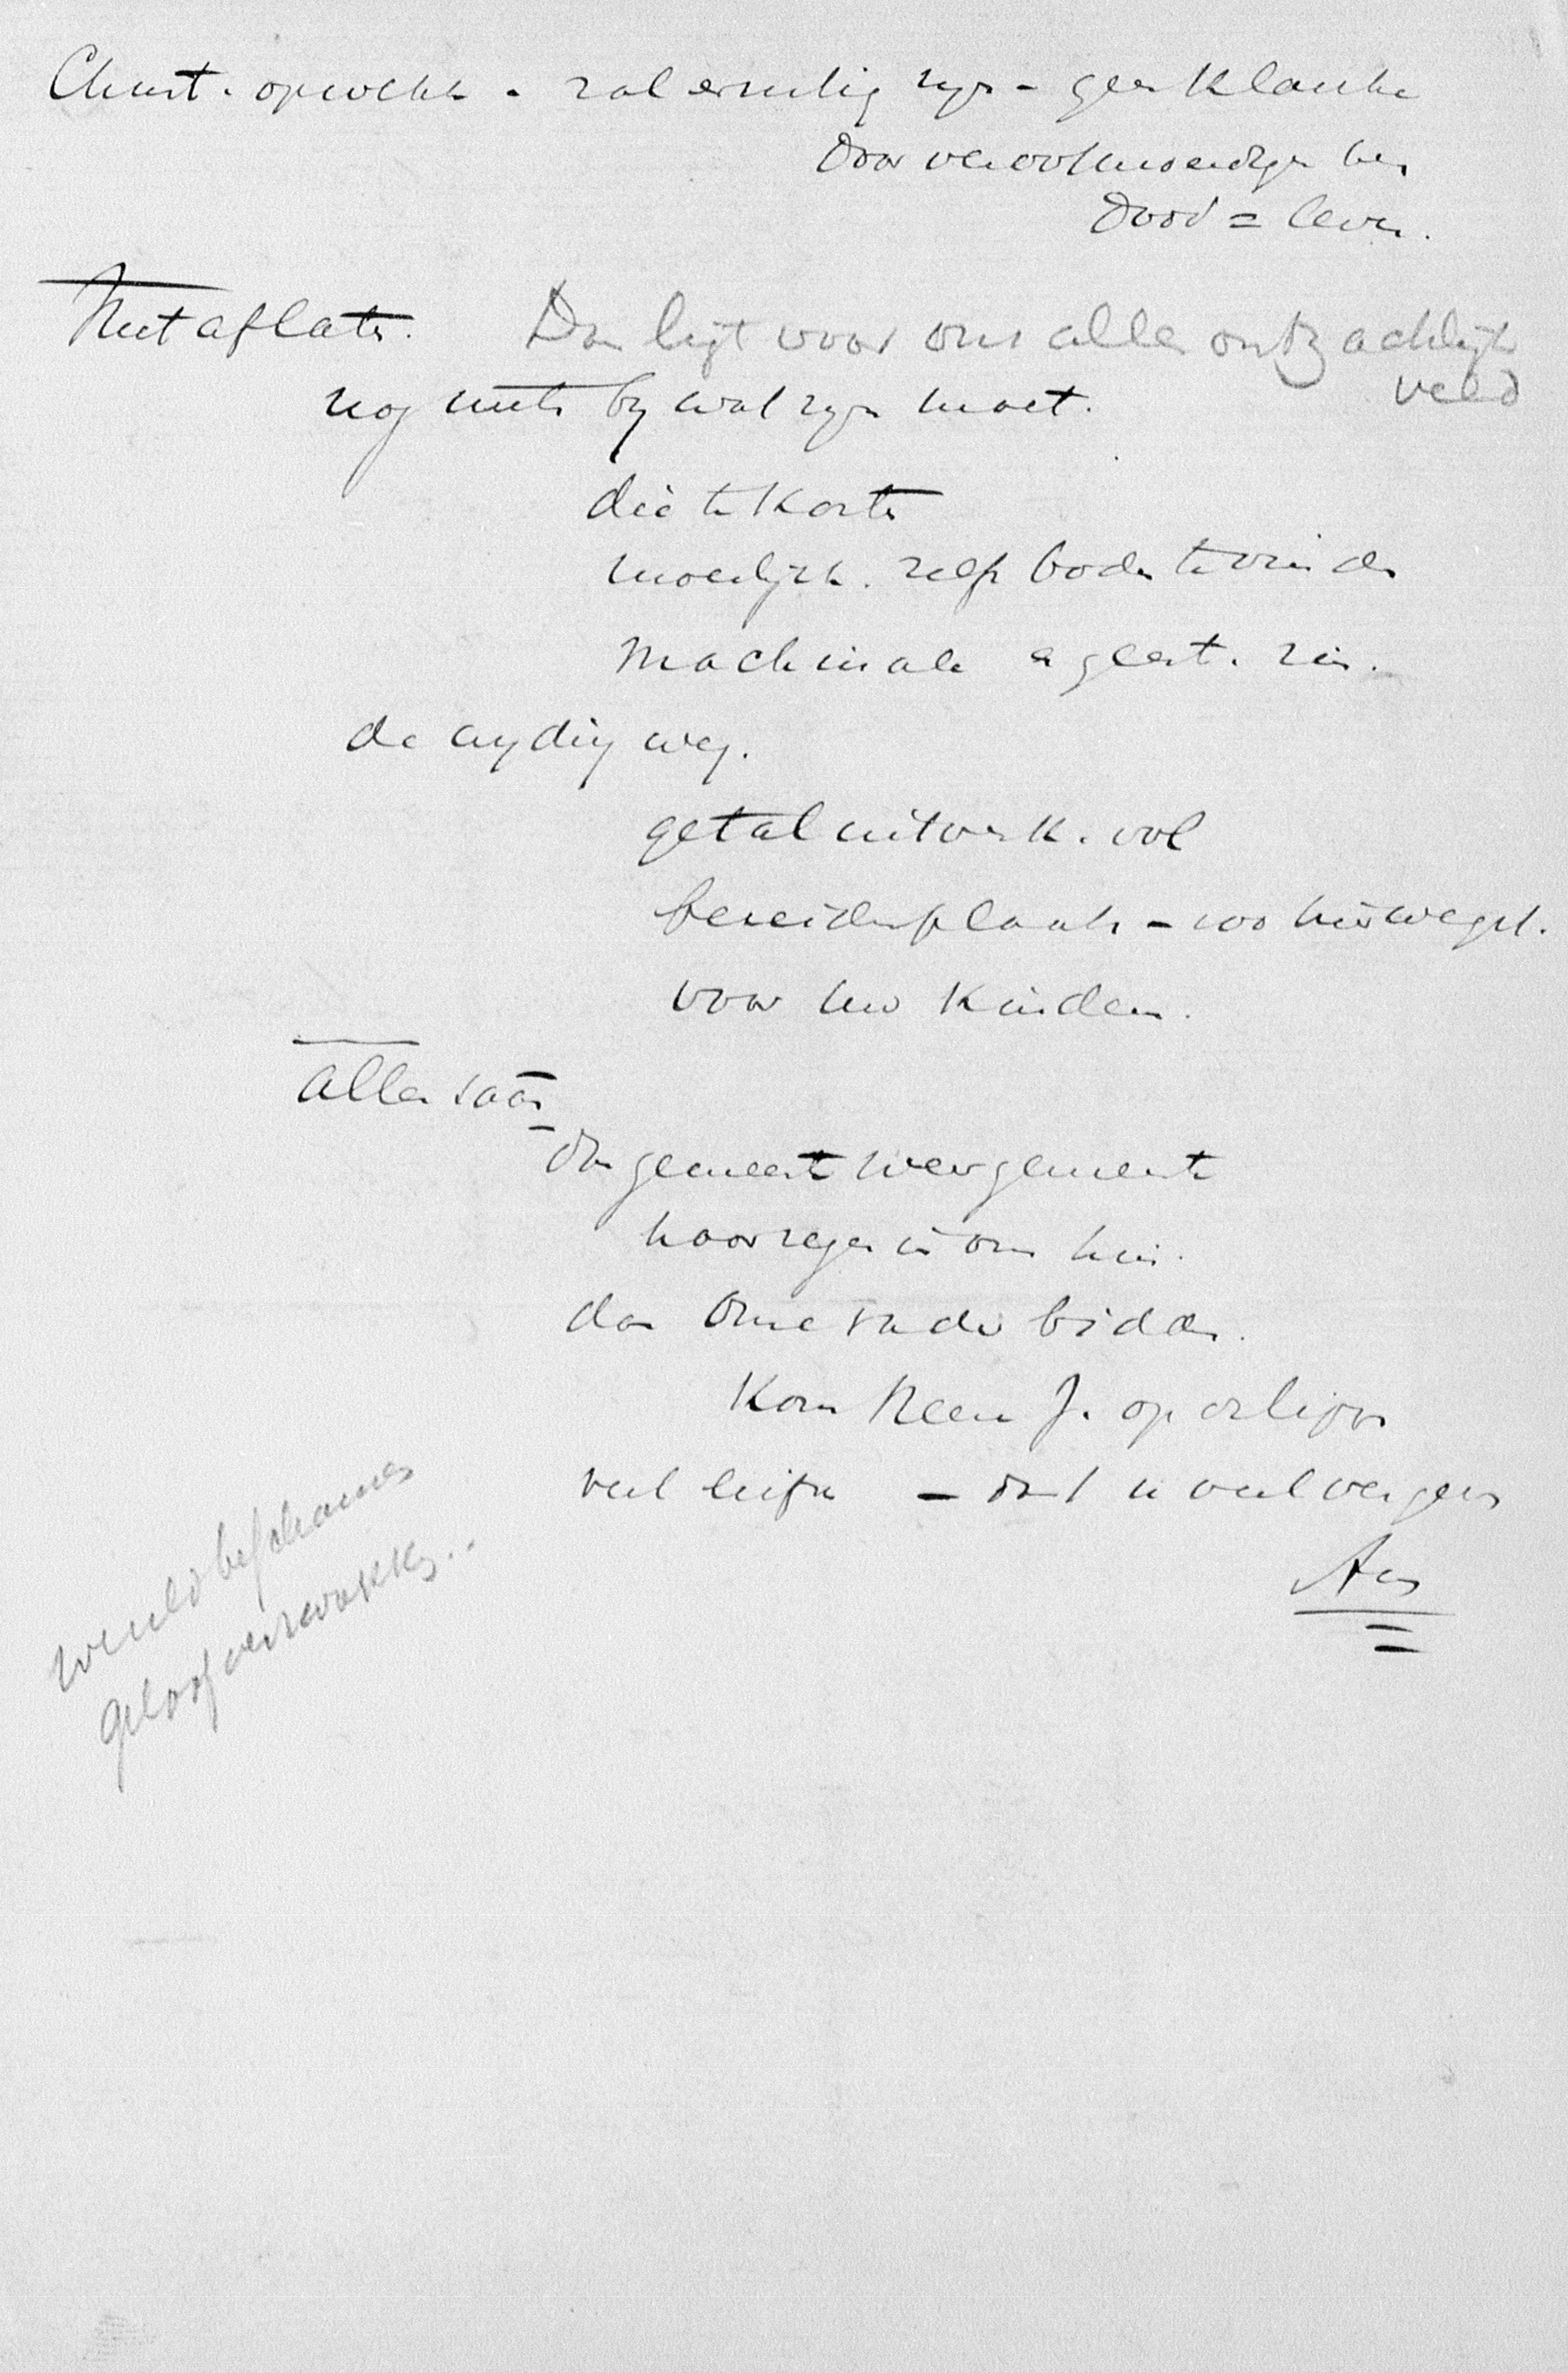 Christ. opwekk - zal ernstig zyn - geen klanke
Door verootmoedigen hen
Dood = leven.
Niet aflaten. Daar ligt voor ons allen ontzachlijk
veld
nog niets by wat zyn moet.
die te korte
moeilijkh. zelfs boden te vinden
machinale geest. zin.
de weg.
getal uitverk. vol
bereiden plaats - zoo
voor uw kinderen.
allen saâm
gemeente weer gemeente
hoor zegen in ons huis.
dan Onze Vader bidden.
Kom Heer J. op
veel liefde - dat u veel vergeven
Am
wereld beschamen
geloof verzwakken..